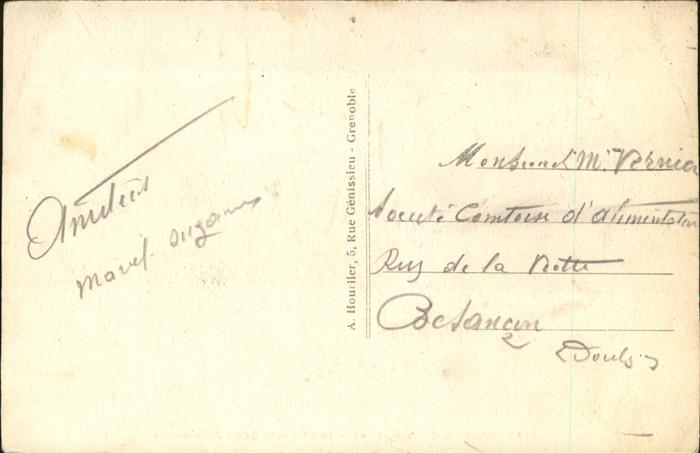 Amitiés
Marcel Suzanne
A. Hourlier, 5, Rue Génissieu - Grenoble
Monsieur M. Vernier
Société Comtoise d'alimentation
Rue de la
Besançon
(Doubs)